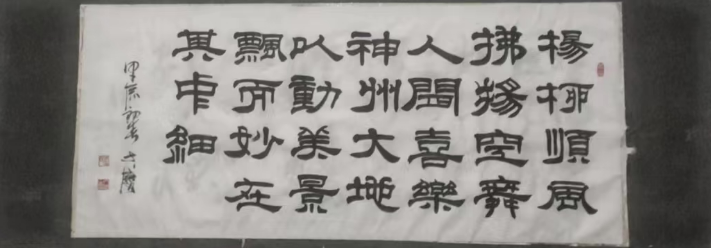 楊柳順風
拂揚空舞
人間喜樂
神州大地
以動美景
飄而妙在
其中細
甲辰初春